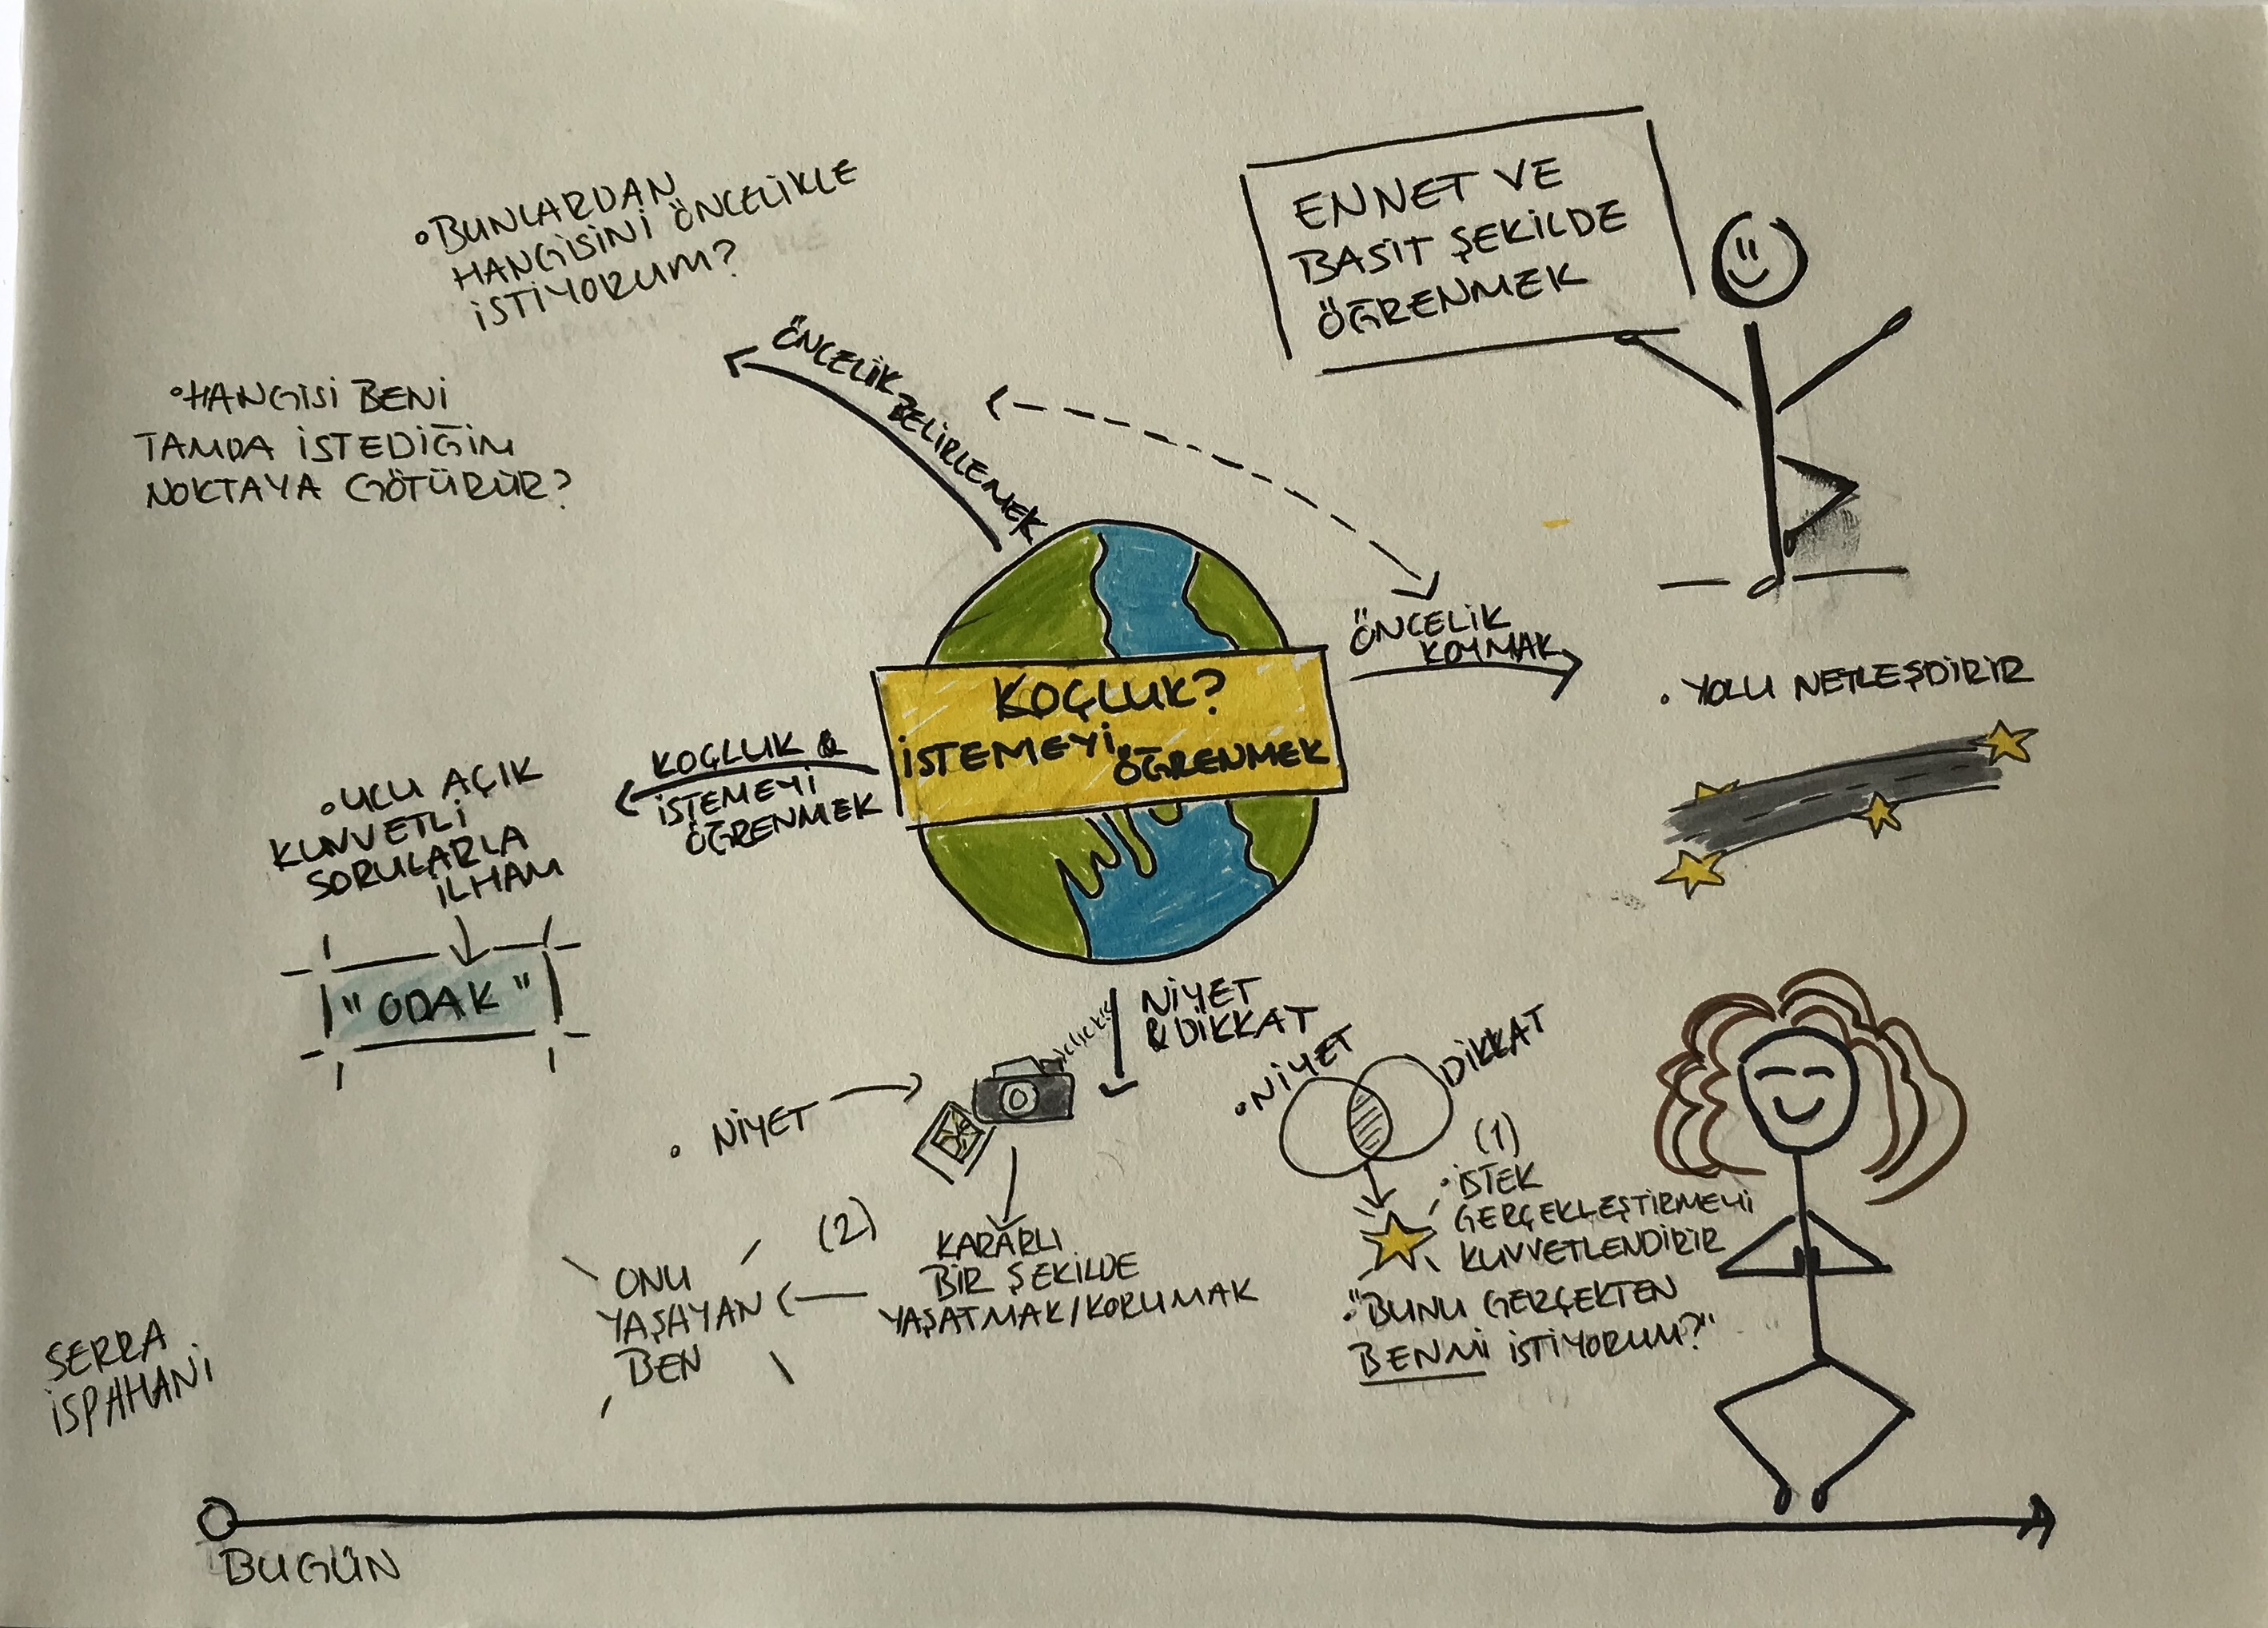 •BUNLARDAN
HANGİSİNİ ÖNCELİKLE
İSTİYORUM?
•HANGİSİ BENİ
TAMDA İSTEDİĞİM
NOKTAYA GÖTÜRÜR?
ÖNCELİK BELİRLEMEK
EN NET VE
BASİT ŞEKİLDE
ÖĞRENMEK
ÖNCELİK
KOYMAK
•YOLU NETLEŞDİRİR
KOÇLUK?
İSTEMEYİ ÖĞRENMEK
KOÇLUK &
İSTEMEYİ
ÖĞRENMEK
•UCU AÇIK
KUVVETLİ
SORULARLA
İLHAM
"ODAK"
NİYET
& DİKKAT
•NİYET
•NİYET
DİKKAT
(1)
•İSTEK
GERÇEKLEŞTİRMEYİ
KUVVETLENDİRİR
•"BUNU GERÇEKTEN
BENMİ İSTİYORUM?"
KARARLI
BİR ŞEKİLDE
YAŞATMAK/KORUMAK
(2)
ONU
YAŞAYAN
BEN
SERRA
İSPAHANİ
BUGÜN